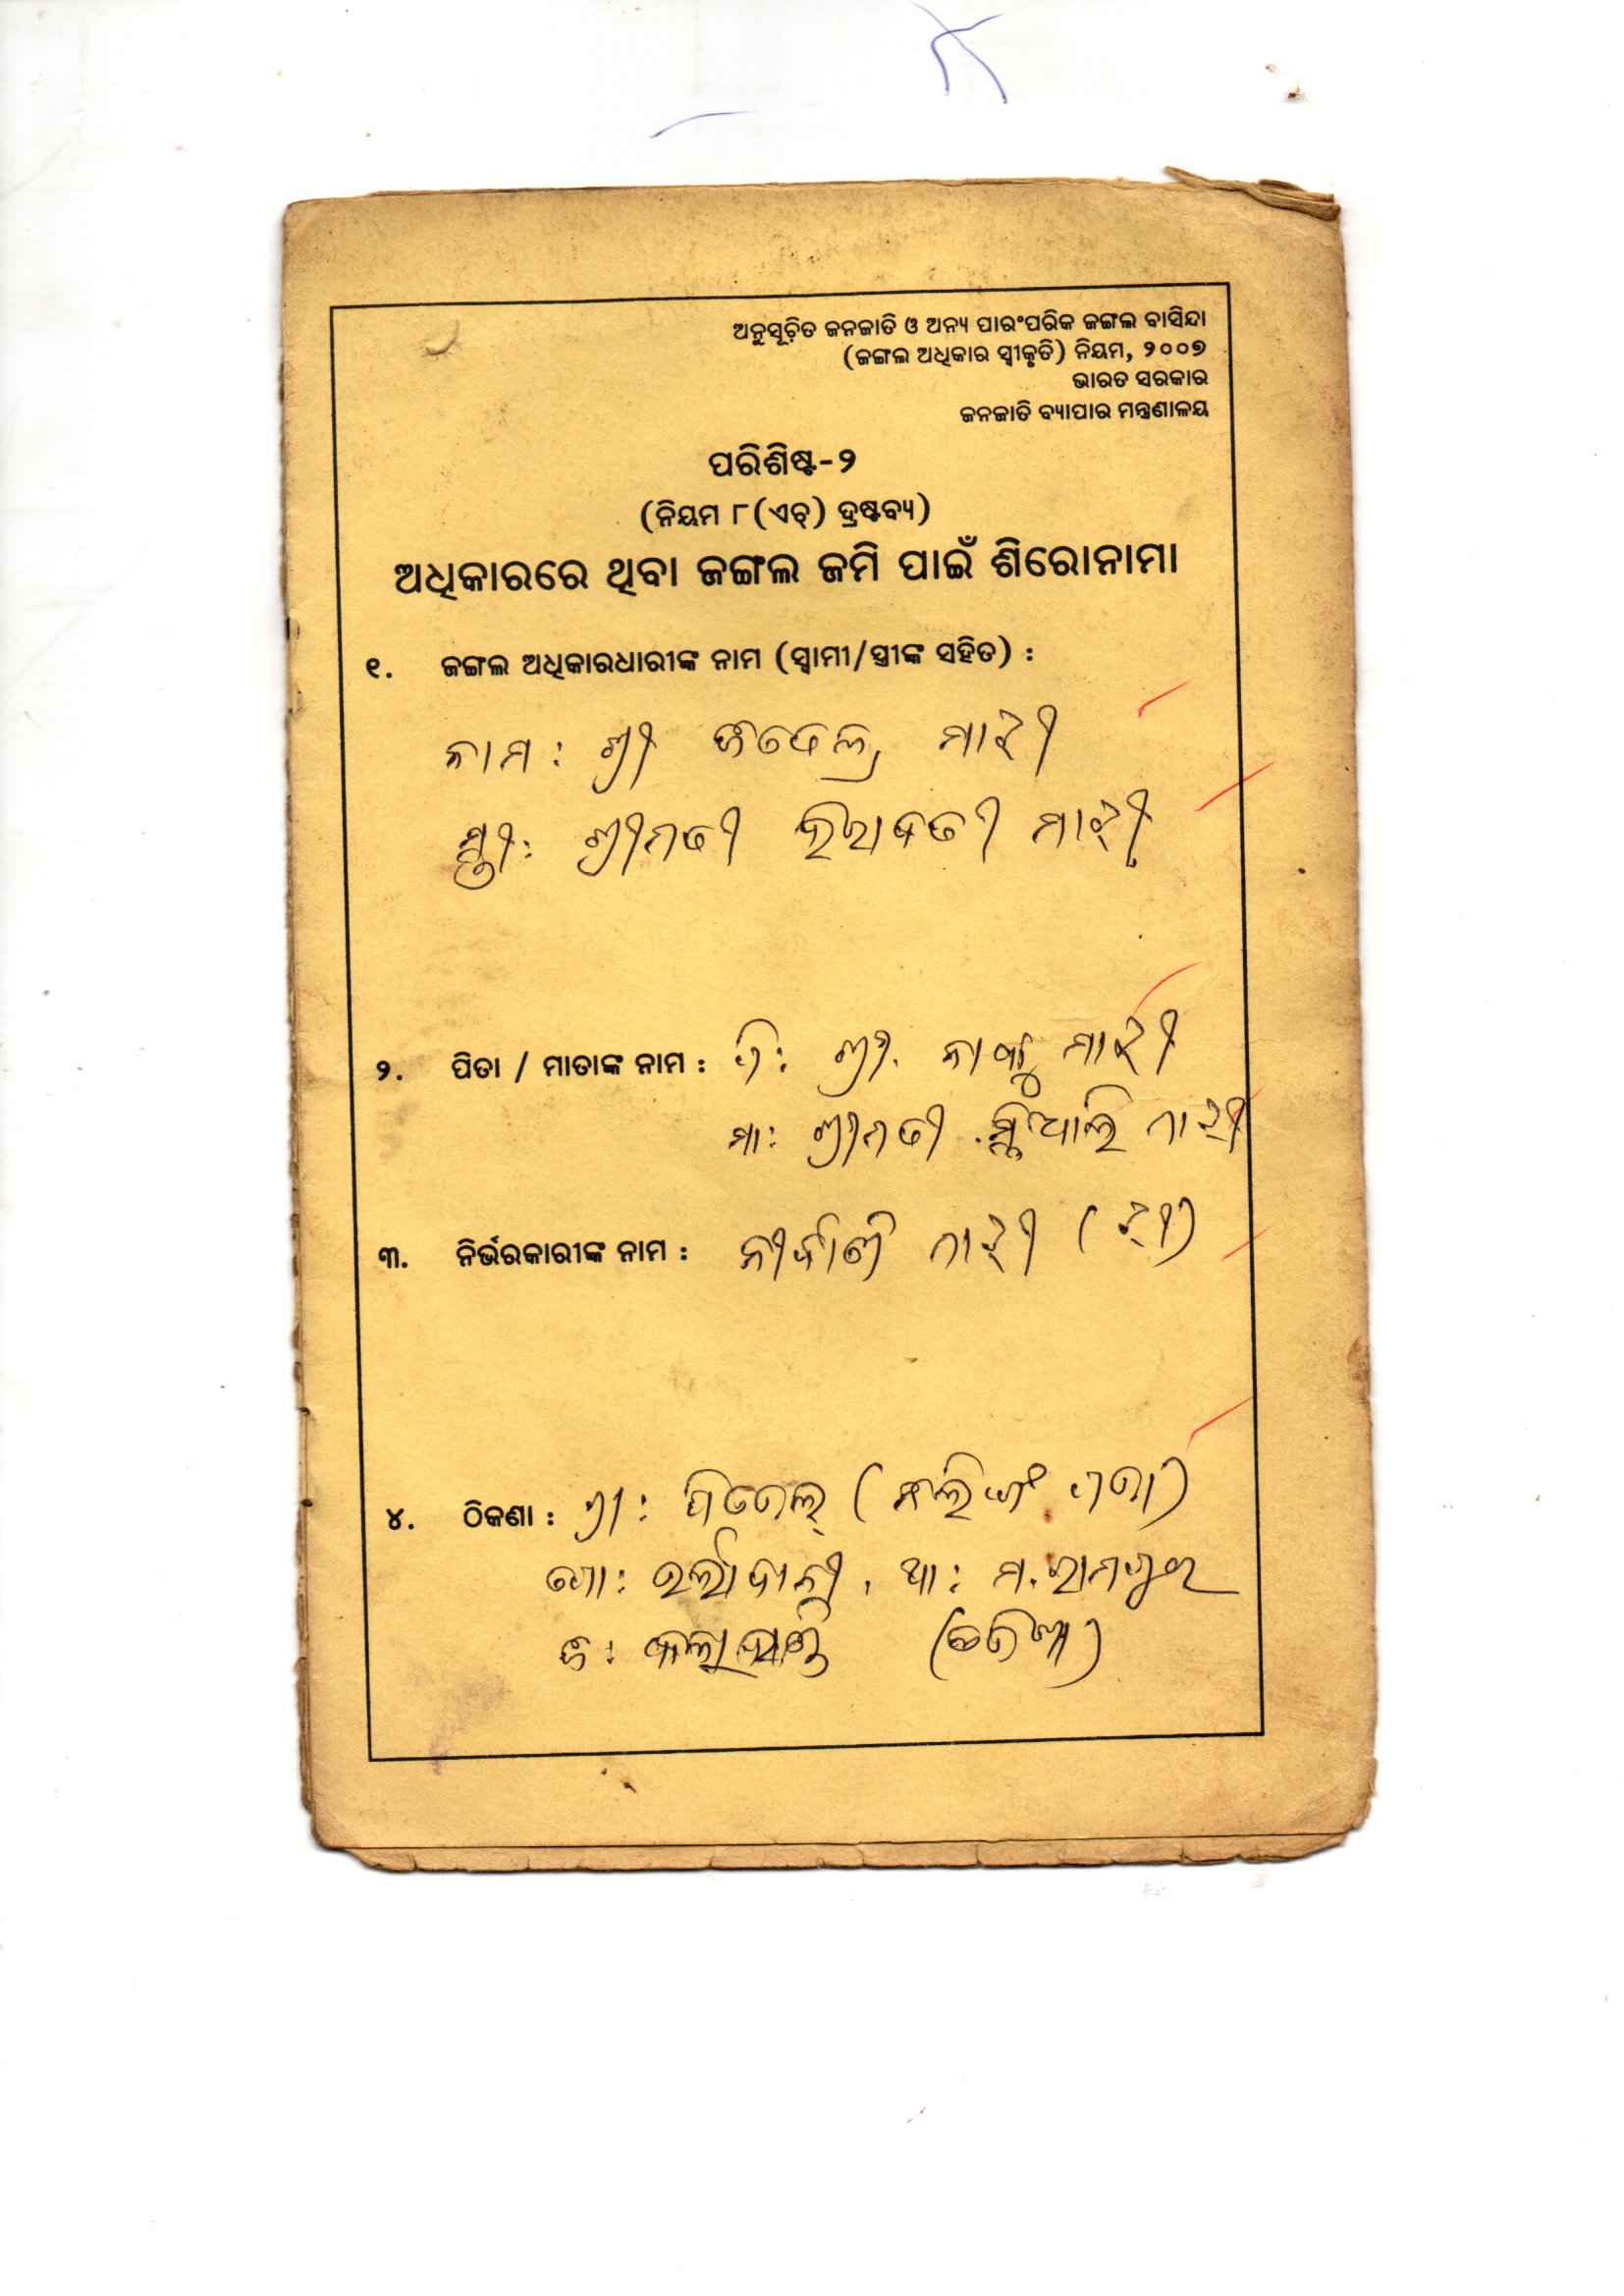 ଅନୁସୂଚ଼ିତ ଜନଜାତି ଓ ଅନ୍ୟ ପାରଂପରିକ ଜଙ୍ଗଲ ବାସିନ୍ଦା
(ଜଙ୍ଗଲ ଅଧିକାର ସ୍ୱୀକୃତି) ନିୟମ, ୨୦୦୭
ଭାରତ ସରକାର
ଜନଜାତି ବ୍ୟାପାର ମନ୍ତ୍ରଣାଳୟ
ପରିଶିଷ୍ଟ-୨
(ନିୟମ ୮(ଏଚ୍) ଦ୍ରଷ୍ଟବ୍ୟ)
ଅଧିକାରରେ ଥିବା ଜଙ୍ଗଲ ଜମି ପାଇଁ ଶିରୋନାମା
୧. ଜଙ୍ଗଲ ଅଧିକାରଧାରୀଙ୍କ ନାମ (ସ୍ୱାମୀ/ସ୍ତ୍ରୀଙ୍କ ସହିତ) :
ନାମ : ଶ୍ରୀ ମାଝୀ
ସ୍ତ୍ରୀ : ଶ୍ରୀମତୀ ମାଝୀ
୨. ପିତା / ମାତାଙ୍କ ନାମ : ପି : ଶ୍ରୀ. ମାଝୀ
ମା : ଶ୍ରୀମତୀ ମାଝୀ
୩. ନିର୍ଭରକାରୀଙ୍କ ନାମ : ମାଝୀ (ଝି)
୪. ଠିକଣା : ଗ୍ରା :
ପୋ : ଥା : ମ. ରାମପୁର
ଜି : କଳାହାଣ୍ଡି (ଓଡିଶା)